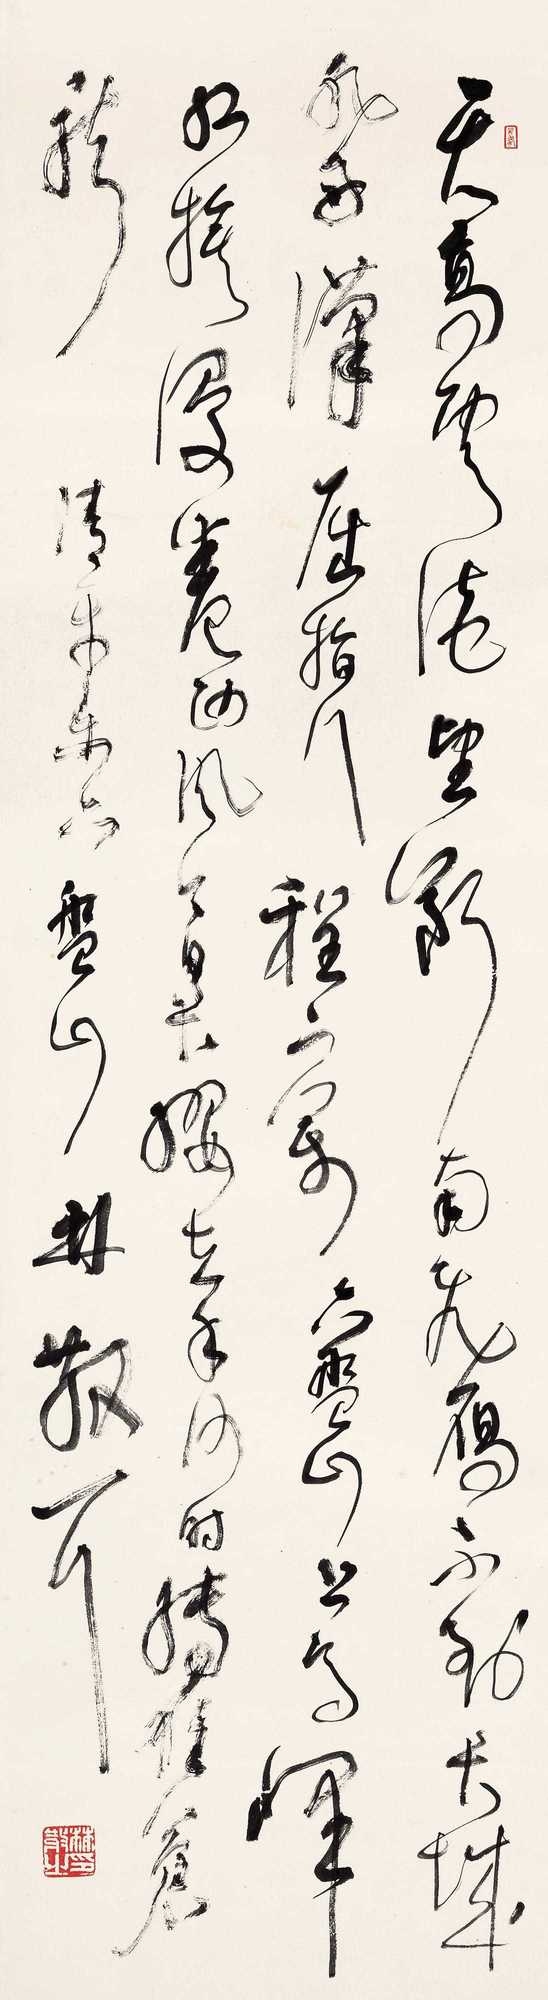 天高雲淡望斷南飛雁不到長城
非好漢屈指行程二萬六盤山上高峰
紅旗漫卷西風今日長纓在手何时縛住蒼
龍
清平樂六盤山 林散耳
林散之印